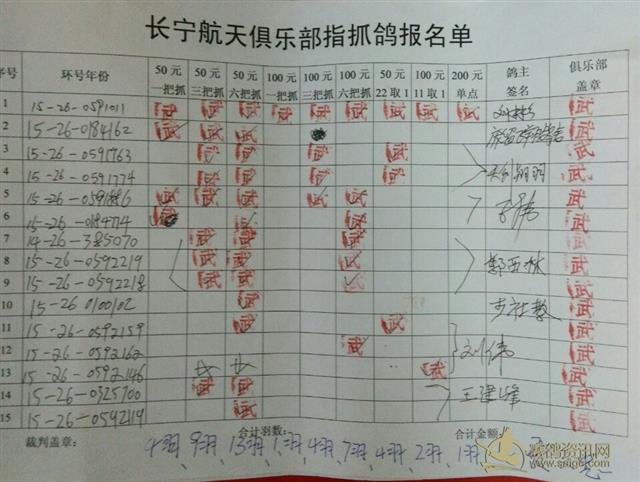 长宁航天俱乐部指抓鸽报名单
序号 环号年份 50元一把抓 50元三把抓 50元六把抓 100元一把抓 100元三把抓 100元六把抓 50元22取1 100元11取1 200元单点 鸽主签名 俱乐部盖章
1 15-26-0591011 武 武 武 武 武 武 武 武 武 武
2 15-26-0184162 武 武 武 武
3 15-26-0591763 武 武 武 武 武
4 15-26-0591774 武 武 武 武 武
5 15-26-0591886 武 武 武 武 武 武
6 15-26-0184774 武 武 武
7 14-26-385070 武 武 武 武
8 15-26-0592219 武 武 武 郭西林 武
9 15-26-0592218 武 武 武 武
10 15-26-0100102 武 武
11 15-26-0592159 武 武 武
12 15-26-0592162 武 刘伟 武
13 15-26-0592146 武 武
14 15-26-0325700 武 武 王建峰 武
15 15-26-0592119 武 武
裁判盖章: 合计羽数: 合计金额:
9羽、13羽、1羽、4羽、7羽、4羽、2羽、1羽
赛鸽资讯网